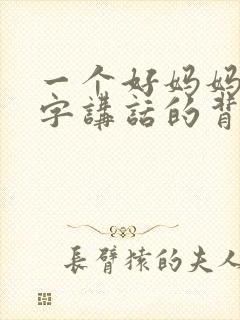 一个好妈妈
字講話的背
長臂猿的夫人